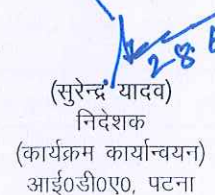 (सुरेन्द्र यादव)
निदेशक
(कार्यक्रम कार्यान्वयन)
आई०डी०ए०, पटना